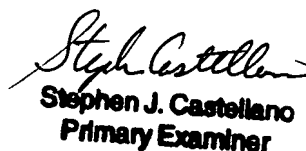 Stephen Castellano
Stephen J. Castellano
Primary Examiner